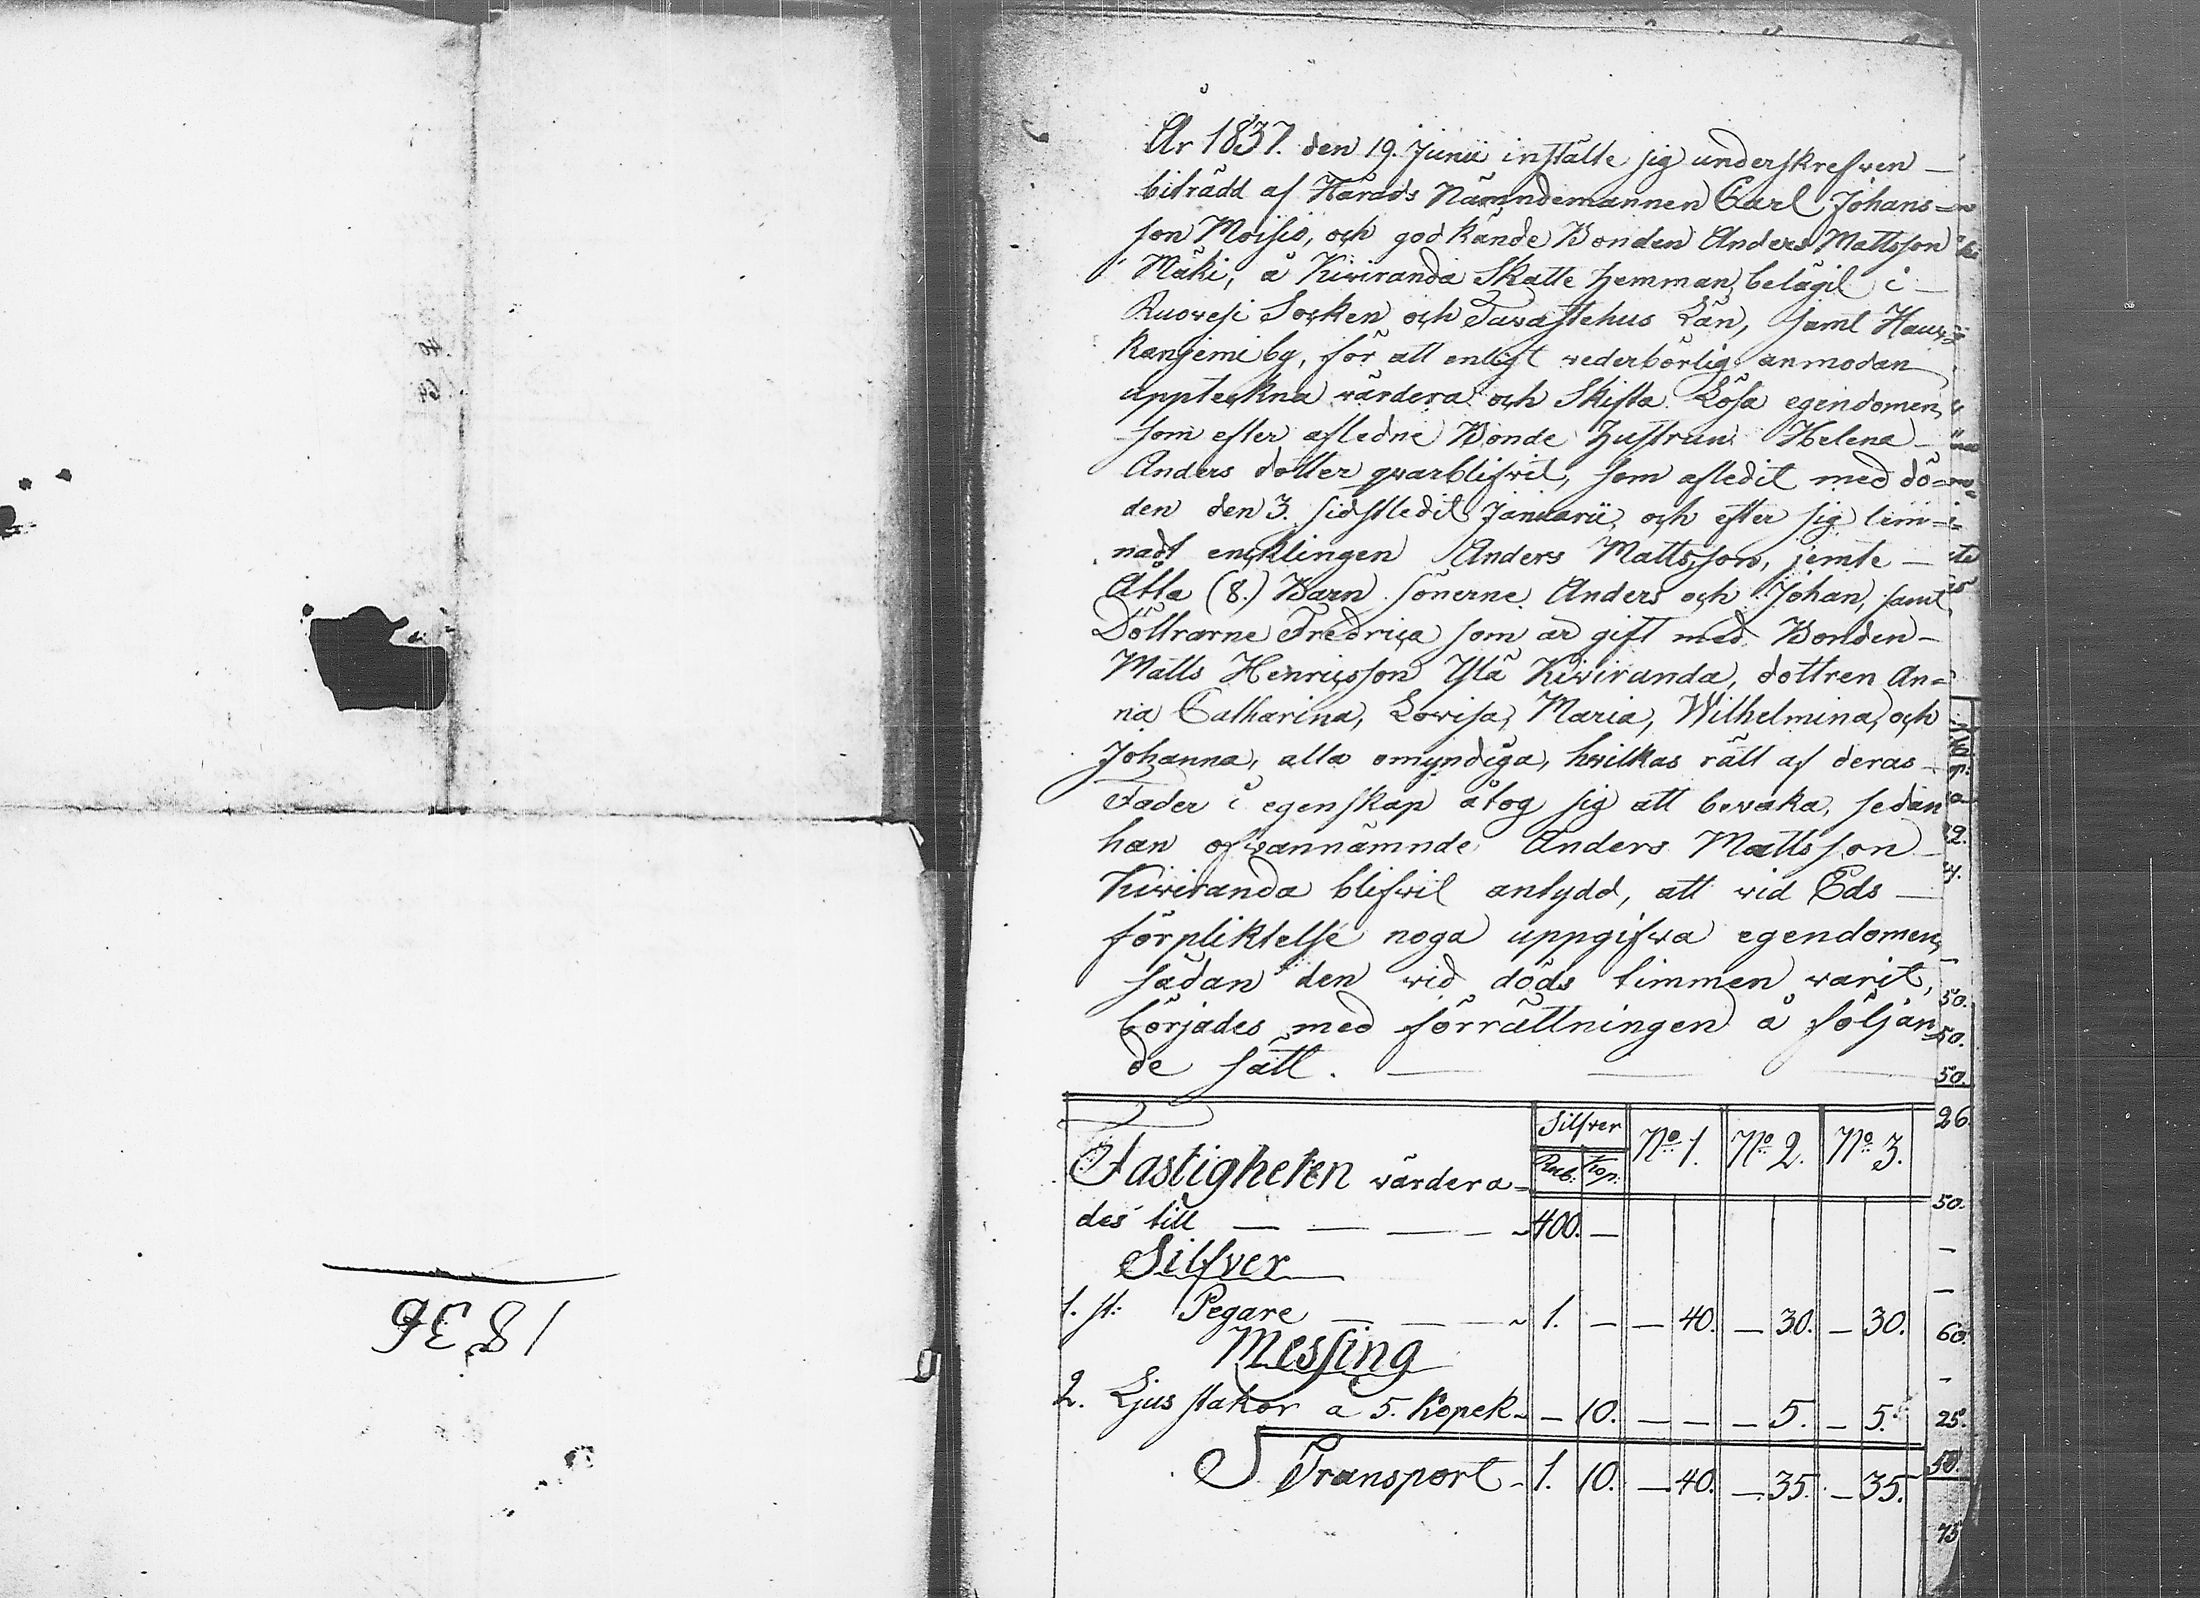 År 1837. den 19. Junii instälte sig underskrefwen
biträdd af Härads Nämndemannen Carl Johans=
son Moisio, och godkände Bonden Anders Mattsson
Mäki, å Kiviranda Skatte hemman, belägit i
Ruovesi Socken och Tavastehus Län, samt Hauk
kanjemi by, för att enligt wederbörlig anmodan
uppteckna wärdera och Skifta Lösa egendomen,
som efter afledne Bonde hustrun Helena
Anders dotter qvarblifwit, som afledit med dö=
den den 3. sidstledit Januarii, och efter sig lem=
nadt encklingen Anders Mattsson, jemte
Åtta (8.) Barn Sönerne Anders och Johan, samt
Döttrarne Fredrica som är gift med Bonden
Matts Henricsson Ylä Kiviranda, dottren An=
na Catharina, Lovisa, Maria, Wilhelmina, och
Johanna, alla omyndiga, hwilkas rätt af deras
Fader i egenskap åtog sig att bevaka, sedan
han ofvannämnde Anders Mattsson
Kiviranda blifwit antydd, att vid Eds
förpliktelse noga uppgifva egendomen,
sådan den vid döds timmen varit,
börjades med förrättningen å följan
de sätt.
Silfver
Rub. Kop. No 1. No 2. No 3.
Fastigheten värdera=
des till 400. —
Silfver
1. st: Pegare 1. — — 40. — 30. — 30.
Messing
2. Ljus stakor a 5. Kopek — 10. — — — 5. — 5.
Transport 1. 10. — 40. — 35. — 35.
50.
50.
50.
26.
50.
60.
25.
50.
75
1836